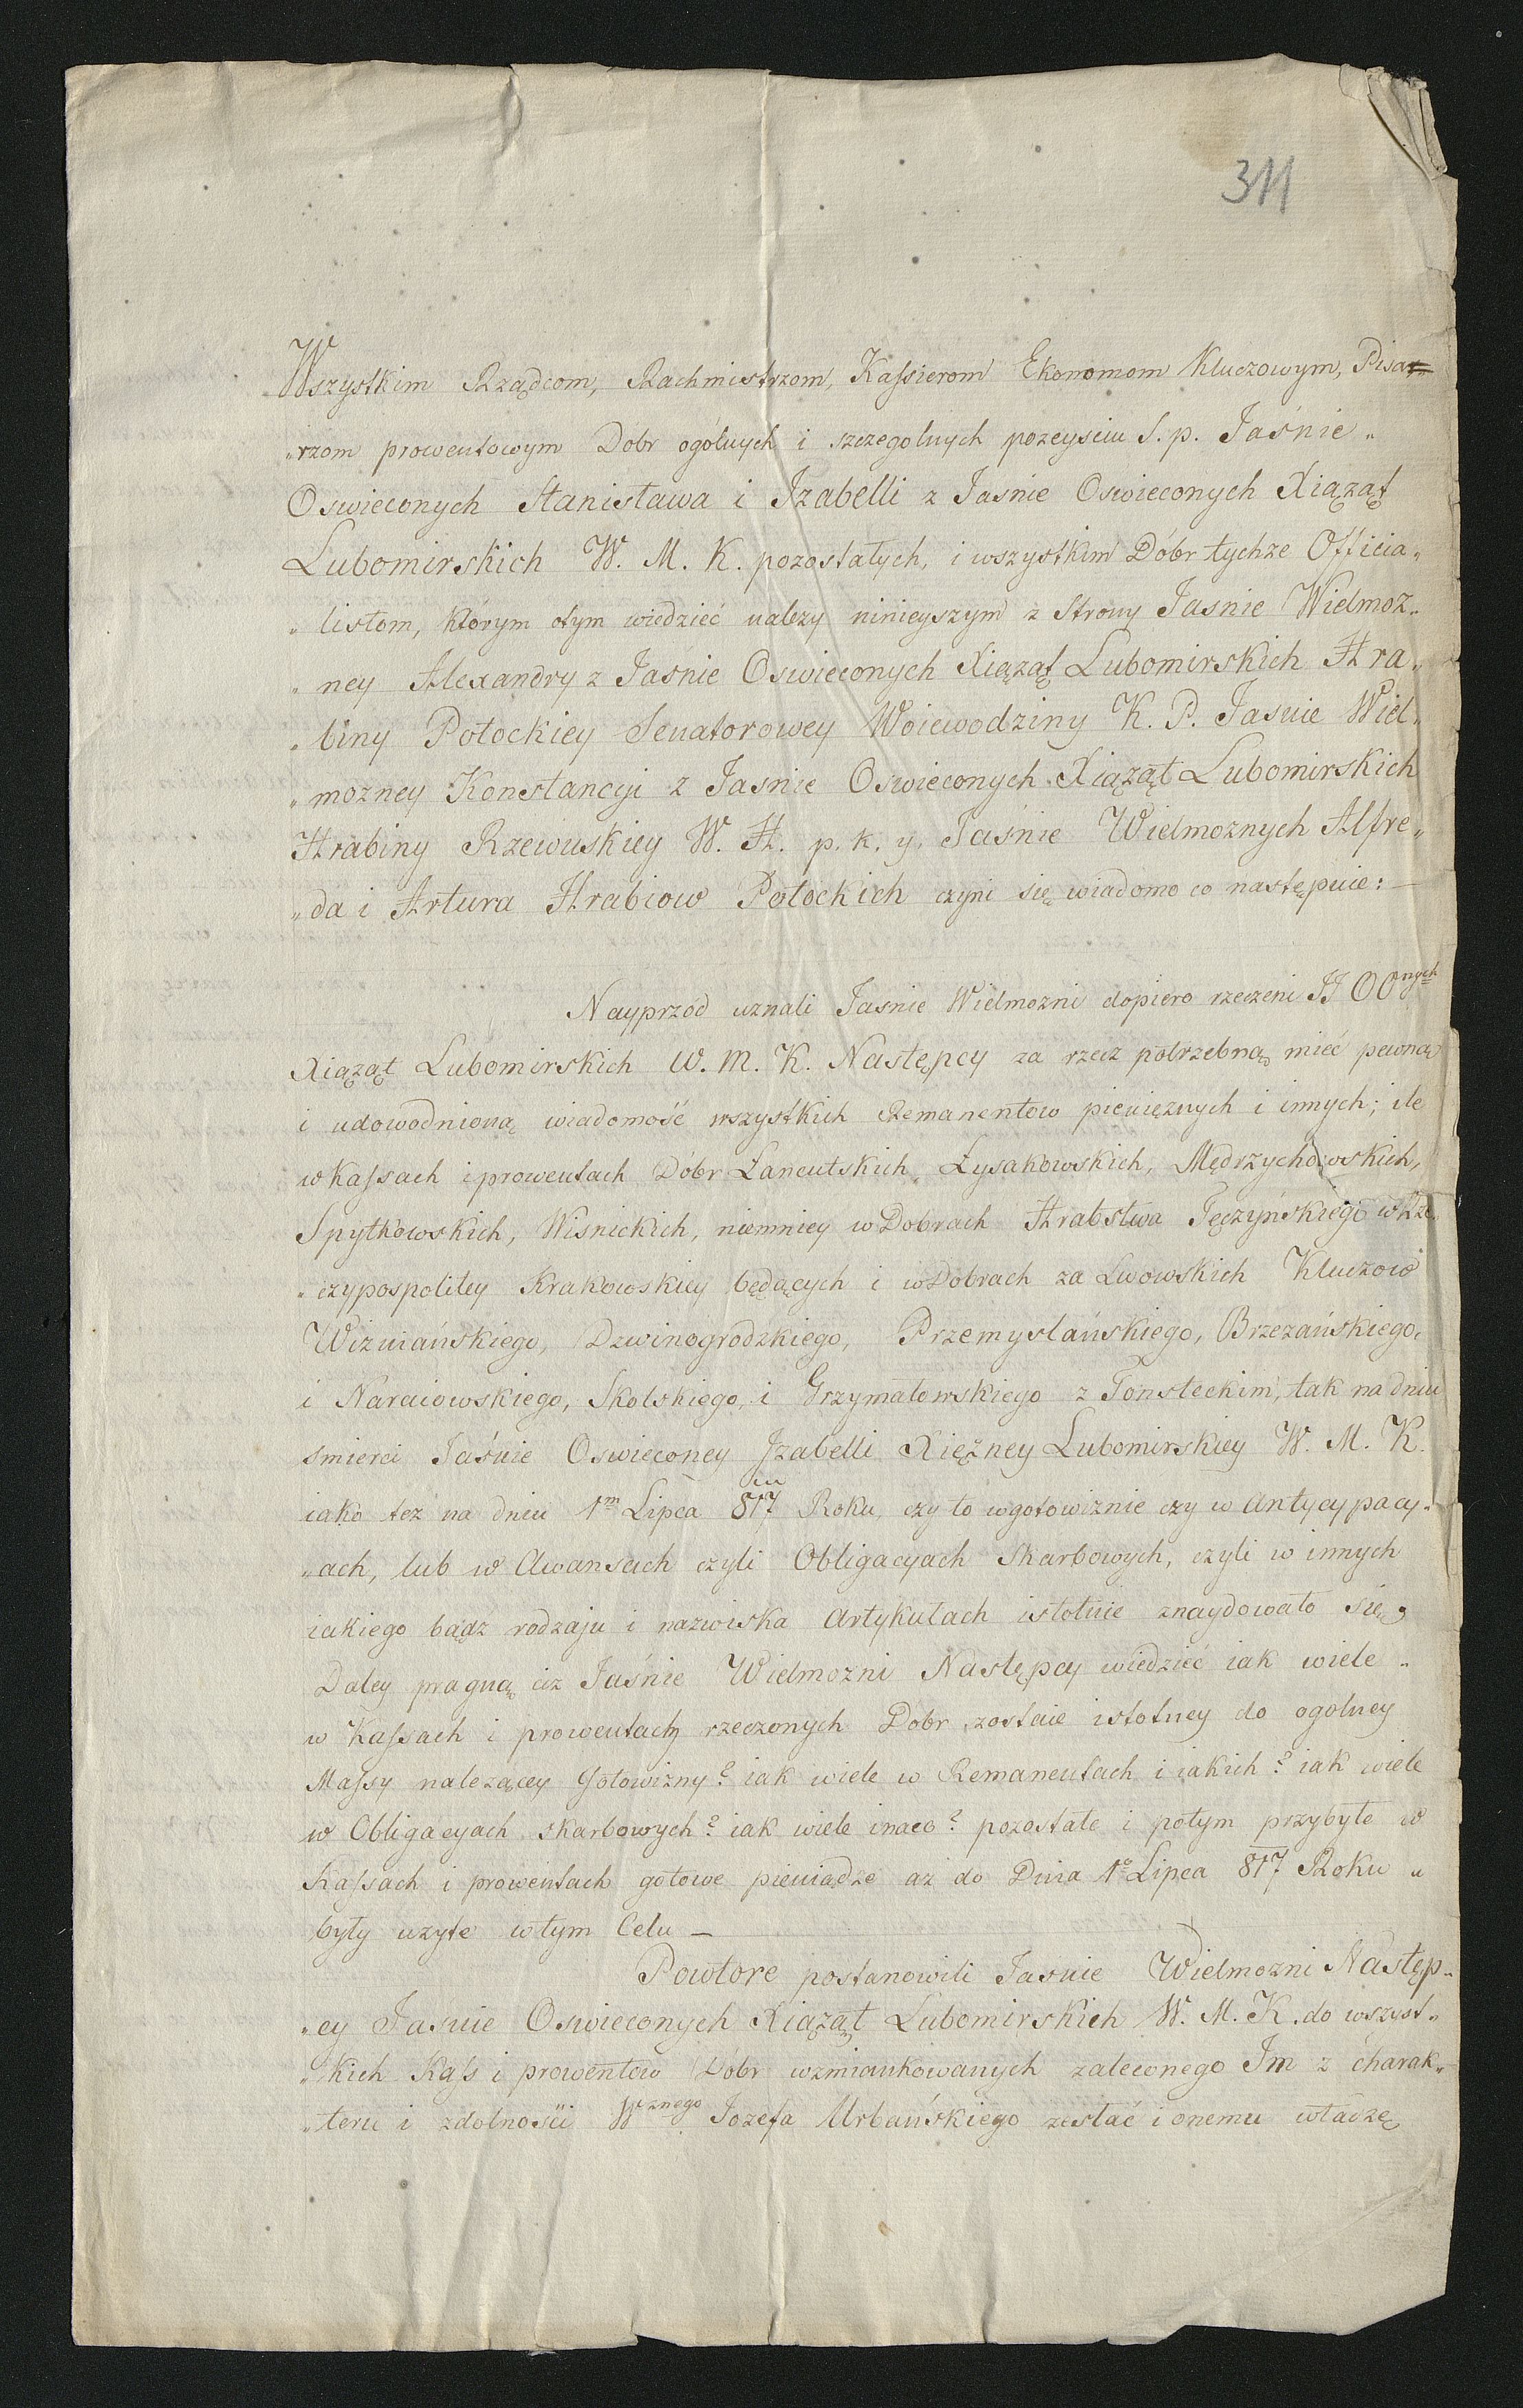 311
Wszystkim Rządcom, Rachmistrzom, Kassierom Ekonomom Kluczowym, Pisa=
„rzom prowentowym Dobr ogólnych i szczegolnych pozeysciu S. p. Jaśnie „
Oswieconych Stanisława i Izabelli z Jasnie Oswieconych Xiąząt
Lubomirskich W. M. K. pozostałych, i wszystkim Dóbr tychze Officia„
„listom, którym otym wiedzieć nalezy ninieyszym z Strony Jasnie Wielmoz„
„ney Alexandry z Jaśnie Oswieconych Xiąząt Lubomirskich Hra„
„biny Potockiey Senatorowey Woiewodziny K. P. Jasnie Wiel„
„mozney Konstancyi z Jasnie Oswieconych Xiąząt Lubomirskich
Hrabiny Rzewuskiey W. H. p. k. y. Jaśnie Wielmoznych Alfre„
„da i Artura Hrabiow Potockich czyni się wiadomo co następuie: —
Nayprzód uznali Jasnie Wielmozni dopiero rzeczeni JJ OOnych
Xiąząt Lubomirskich W. M. K. Następcy za rzecz potrzebną mieć pewną
i udowodnioną wiadomość wszystkich Remanentow pienięznych i innych; ile
w Kassach i prowentach Dóbr Łancutskich, Łysakowskich, Mędrzychowskich,
Spytkowskich, Wisnickich, niemniey w Dobrach Hrabstwa Tęczyńskiego w Rze„
„czypospolitey Krakowskiey będących i w Dobrach za Lwowskich Kluczow
Wizniańskiego, Dzwinogrodzkiego, Przemyslańskiego, Brzezańskiego,
i Naraiowskiego, Skolskiego, i Grzymałowskiego z Tousteckim, tak na dniu
smierci Jaśnie Oswieconey Izabelli Xiężney Lubomirskiey W. M. K.
iako tez na dniu 1m Lipca 817 Roku, czy to w gotowiznie czy w Antycypacy„
„ach, lub w Awansach czyli Obligacyach Skarbowych, czyli w innych
iakiego bądz rodzaju i nazwiska Artykułach istotnie znaydowało się,
Daley pragną ciz Jaśnie Wielmozni Następcy wiedzieć iak wiele „
w Kassach i prowentach rzeczonych Dobr zostaie istotney do ogolney
Massy nalezącey Gotowizny? iak wiele w Remanentach i iakich? iak wiele
w Obligacyach skarbowych? iak wiele inaco? pozostałe i potym przybyłe w
Kassach i prowentach gotowe pieniądze az do Dnia 1o Lipca 817 Roku „
były uzyte w tym Celu —
Powtore postanowili Jasnie Wielmozni Następ„
„cy Jasnie Oswieconych Xiąząt Lubomirskich W. M. K. do wszyst„
„kich Kass i prowentow Dóbr wzmiankowanych zaleconego Im z charak„
„teru i zdolnosci Wznego Jozefa Urbańskiego zesłać i onemu władzę